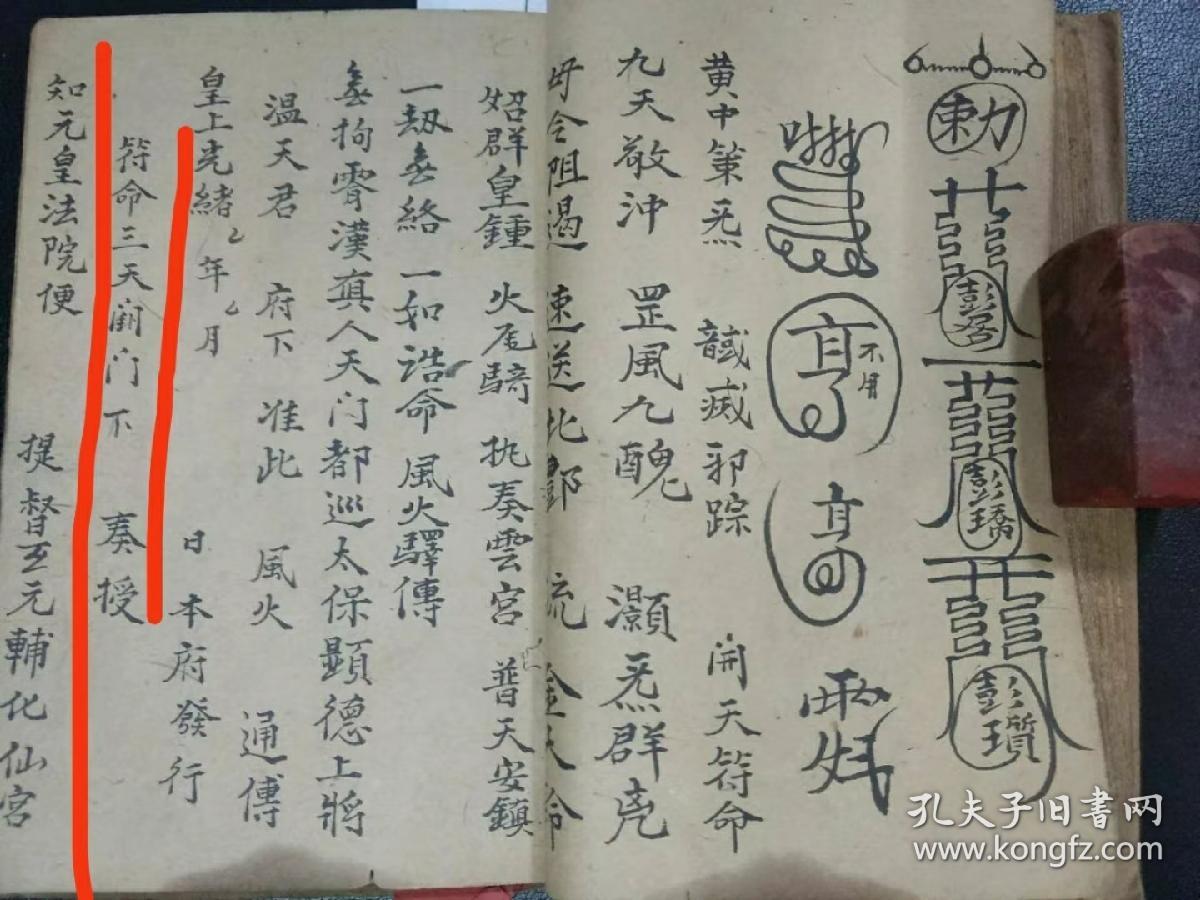 勅
彭答
彭璚
彭瓆
不用
黄中策炁 馘滅邪踪 開天符命
九天敬沖 罡風九醜 灝炁群凶
毋令阻遏 速送北酆 流金火鈴
群皇鍾 火尾騎 执奏雲宮 普天安鎮
一刼 一如诰命 風火驛傳
拘霄漢真人天门都巡太保顕德上將
温天君 府下 准此 風火 通傅
皇上光緒乙年乙月 日本府發行
符命三天门下 奏授
知元皇法院便 提督五元輔化仙宮
孔夫子旧书网
www.kongfz.com